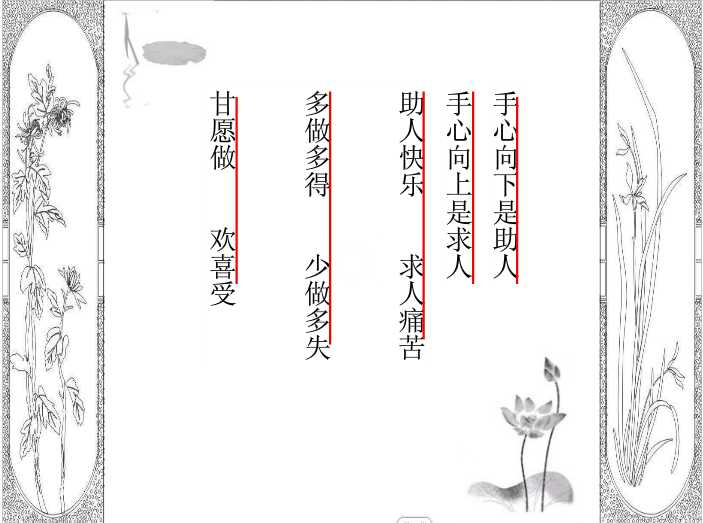 手心向下是助人
手心向上是求人
助人快乐 求人痛苦
多做多得 少做多失
甘愿做 欢喜受